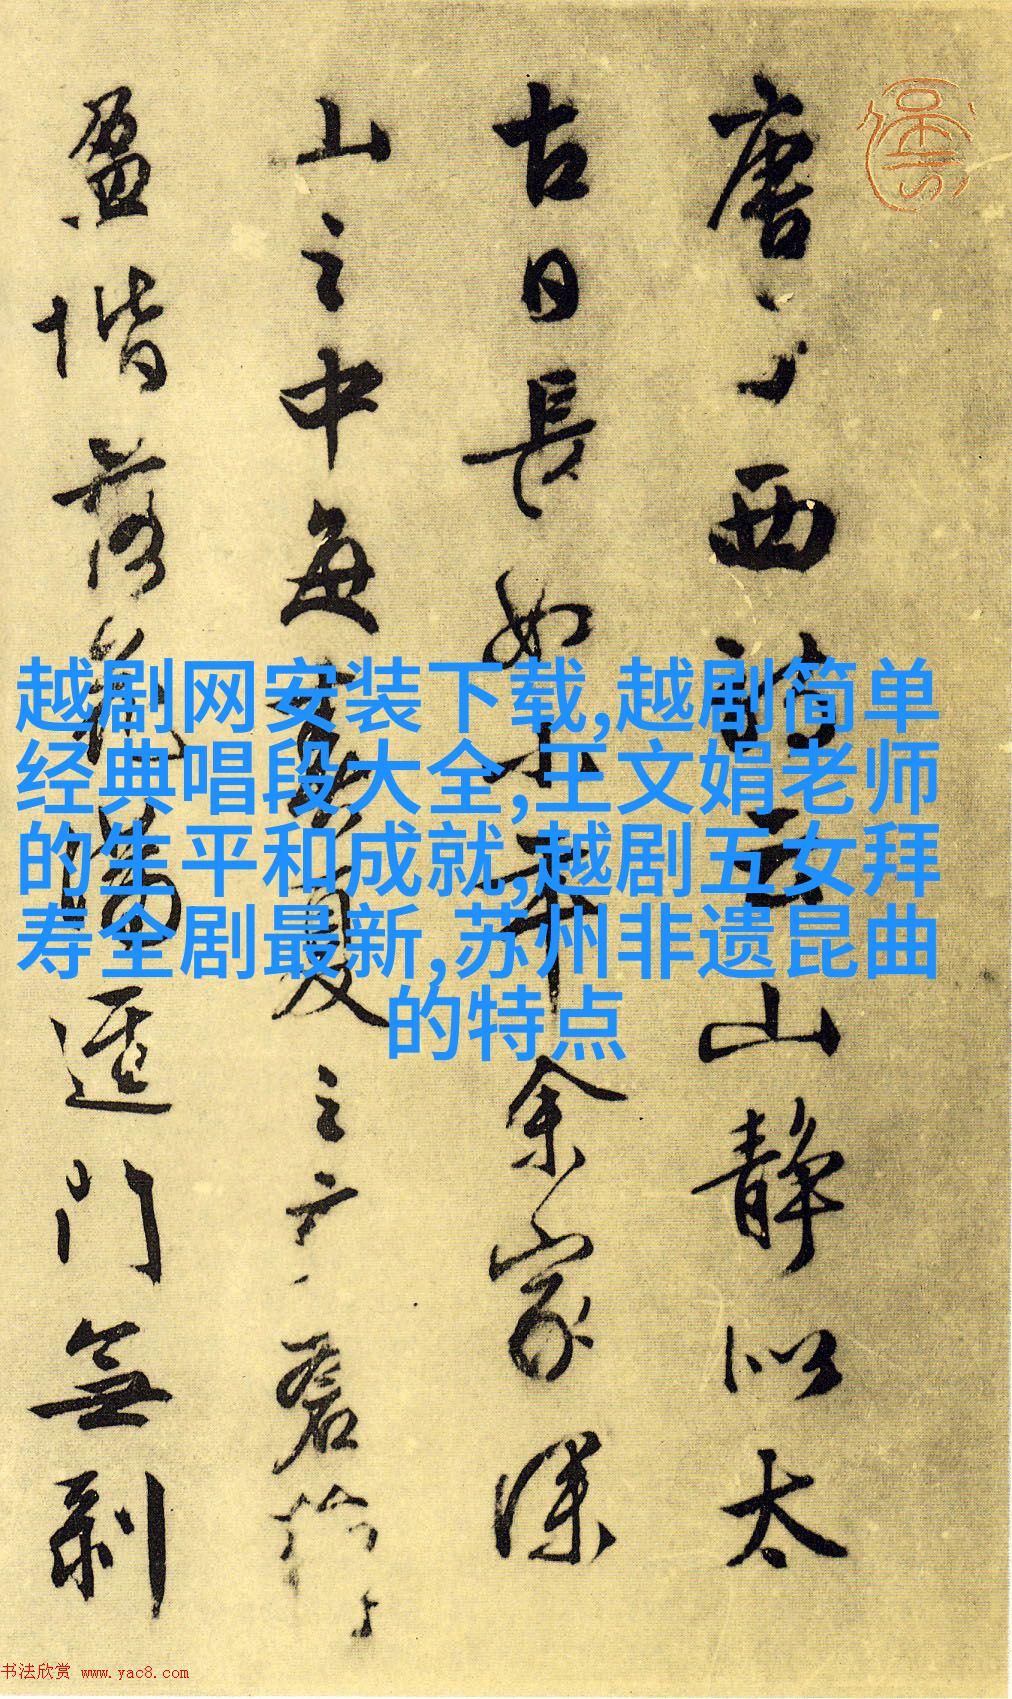 唐子西詩云山靜似太
古日長如小年余家深
山之中每春夏之交蒼蘚
盈堦落花滿逕門無剥
越剧网安装下载,越剧简单
经典唱段大全,王文娟老师
的生平和成就,越剧五女拜
寿全剧最新,苏州非遗昆曲
的特点
书法欣赏 www.yac8.com